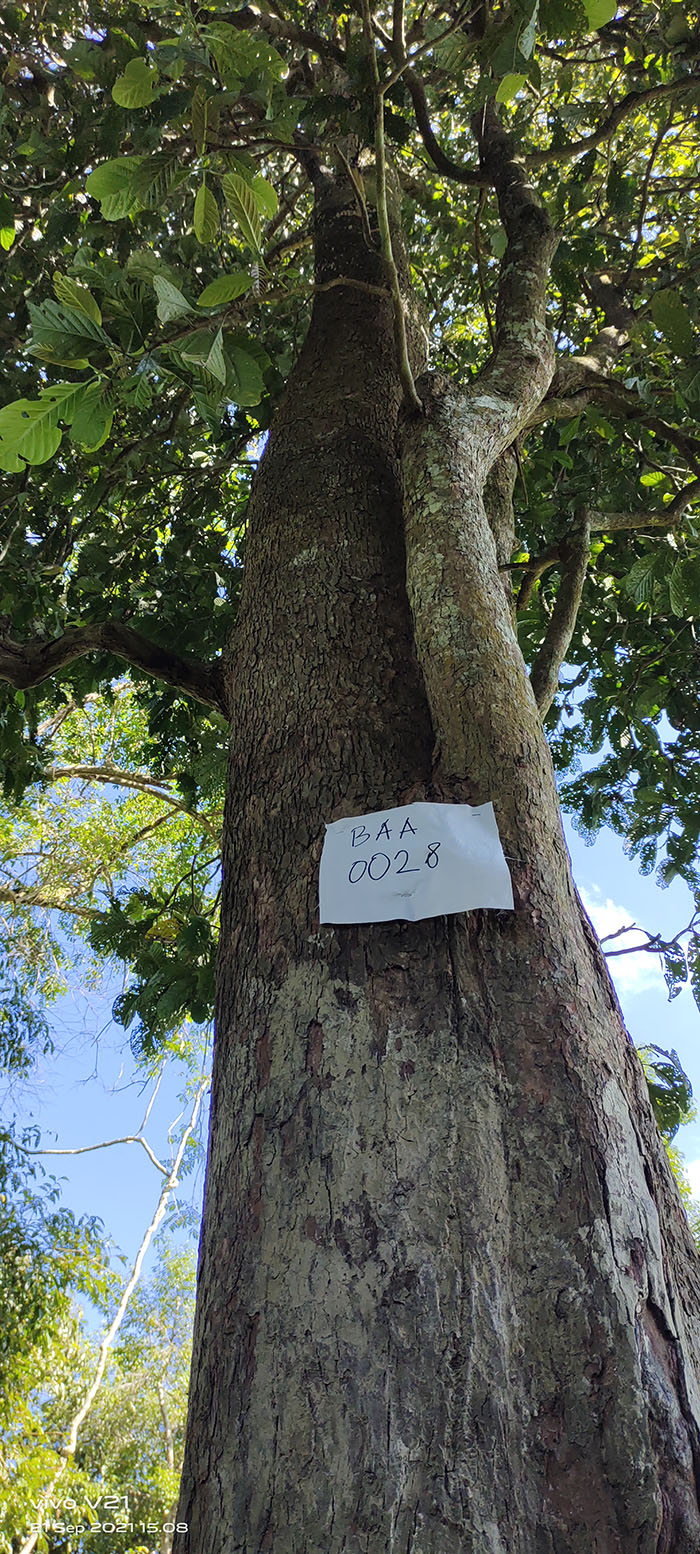 BAA
0028
vivo V21
21 Sep 2021 15:08